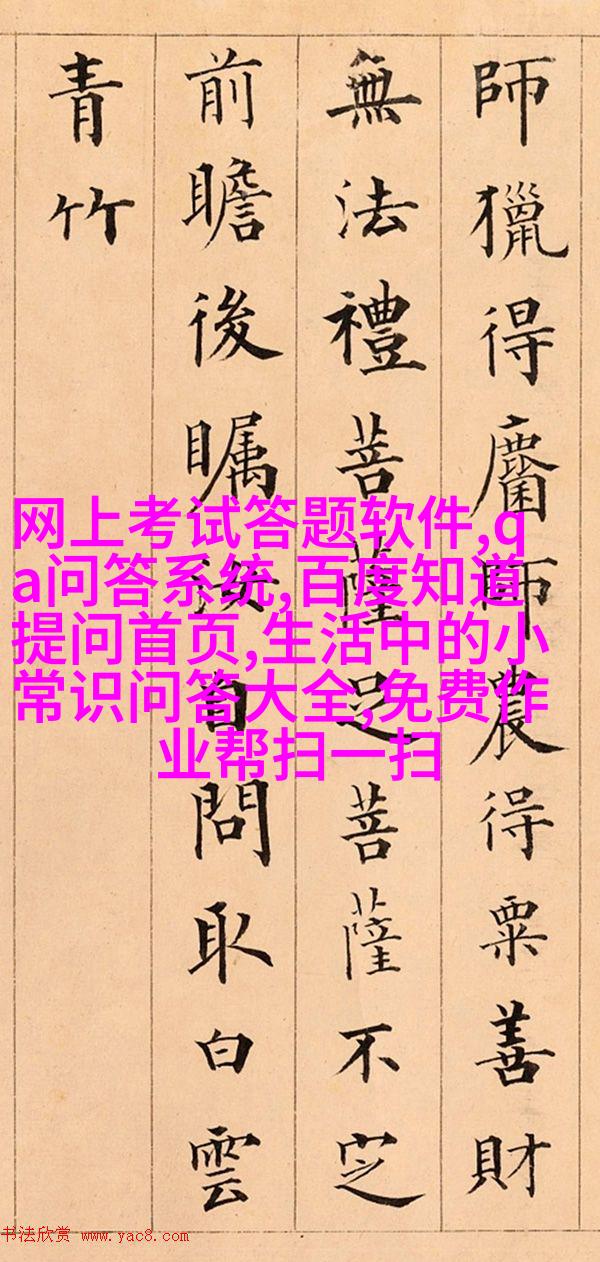 師獵得麕師農得粟善財
無法禮菩薩足菩薩不定
前瞻後矚汝自問取白雲
青竹
网上考试答题软件,q
a问答系统,百度知道
提问首页,生活中的小
常识问答大全,免费作
业帮扫一扫
书法欣赏 www.yac8.com